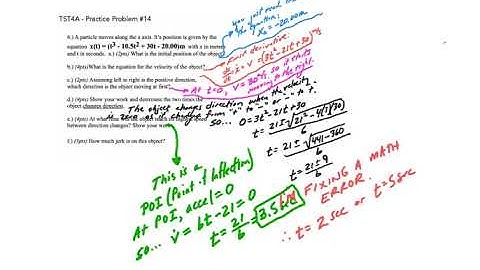 TST4A - Practice Problem #14
6.) A particle moves along the x axis. It's position is given by the
equation x(t) = (t³ - 10.5t² + 30t - 20.00)m with x in meters
and t in seconds. a.) (2pts) What is the initial position of the object?
You just read
the equation:
X₀ = -20.00m
b.) (4pts) What is the equation for the velocity of the object?
First derivative:
dx/dt = ẋ = v = (3t² - 21t + 30) m/s
c.) (2pts) Assuming left to right is the positive direction,
which direction is the object moving at first?
At t=0, v = 30 m/s, so it is
moving to the right.
d.) (4pts) Show your work and determine the two times the
object changes direction.
The object changes direction when the velocity
is zero as it changed from "+" to "-" or "-" to +.
so... 0 = 3t² - 21t + 30
t = 21 ± √21² - 4(3)(30)
6
t = 21 ± √441 - 360
6
t = 21 ± 9
6
FIXING A MATH
ERROR.
∴ t = 2 sec or t = 5 sec
e.) (4pts) At what time
between direction changes? Show your work
This is a
POI (Point of Inflection)
At POI, accel = 0
so... v̇ = 6t - 21 = 0
t = 21/6 = 3.5 sec
f.) (3pts) How much jerk is on this object?